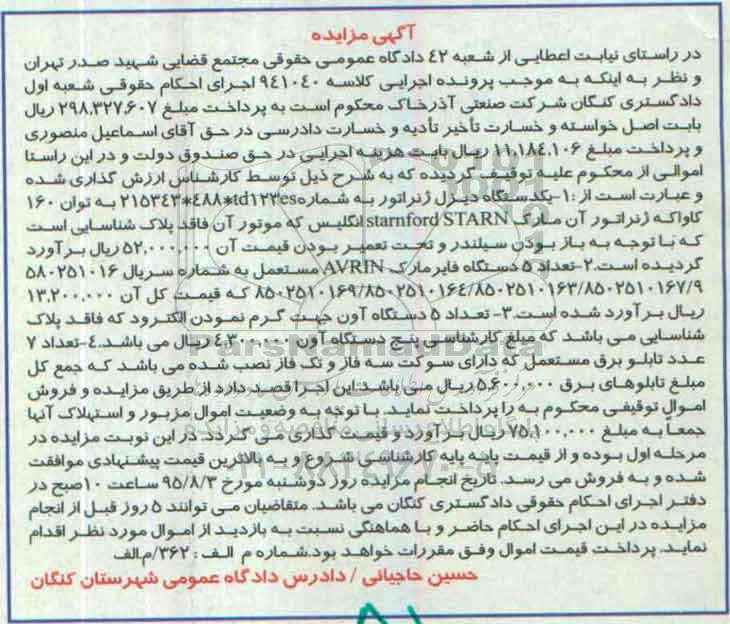 آگهی مزایده
در راستای نیابت اعطایی از شعبه ۴۲ دادگاه عمومی حقوقی مجتمع قضایی شهید صدر تهران
و نظر به اینکه به موجب پرونده اجرایی کلاسه ۹۴۱۰۴۰ اجرای احکام حقوقی شعبه اول
دادگستری کنگان شرکت صنعتی آذرخاک محکوم است به پرداخت مبلغ ۲۹۸,۳۲۷,۶۰۷ ریال
بابت اصل خواسته و خسارت تأخیر تأدیه و خسارت دادرسی در حق آقای اسماعیل منصوری
و پرداخت مبلغ ۱۱,۱۸۴,۱۰۶ ریال بابت هزینه اجرایی در حق صندوق دولت و در این راستا
اموالی از محکوم علیه توقیف گردیده که به شرح ذیل توسط کارشناس ارزش گذاری شده
و عبارت است از :۱-یکدستگاه دیزل ژنراتور به شماره td۱۲۳es*۴۸۸*۲۱۵۳۴۳ به توان ۱۶۰
کاواکه ژنراتور آن مارک starnford STARN انگلیس که موتور آن فاقد پلاک شناسایی است
که با توجه به باز بودن سیلندر و تحت تعمیر بودن قیمت آن ۵۲,۰۰۰,۰۰۰ ریال برآورد
گردیده است.۲-تعداد ۵ دستگاه فایرمارک AVRIN مستعمل به شماره سریال ۵۸۰۲۵۱۰۱۶
۸۵۰۲۵۱۰۱۶۹/۸۵۰۲۵۱۰۱۶۴/۸۵۰۲۵۱۰۱۶۳/۸۵۰۲۵۱۰۱۶۷/۹ که قیمت کل آن ۱۳,۲۰۰,۰۰۰
ریال برآورد شده است.۳- تعداد ۵ دستگاه آون جهت گرم نمودن الکترود که فاقد پلاک
شناسایی می باشد که مبلغ کارشناسی پنج دستگاه آون ۴,۳۰۰,۰۰۰ ریال می باشد.۴-تعداد ۷
عدد تابلو برق مستعمل که دارای سوکت سه فاز و تک فاز نصب شده می باشد که جمع کل
مبلغ تابلوهای برق ۵,۶۰۰,۰۰۰ ریال می باشد.این اجرا قصد دارد از طریق مزایده و فروش
اموال توقیفی محکوم به را پرداخت نماید. با توجه به وضعیت اموال مزبور و استهلاک آنها
جمعاً به مبلغ ۷۵,۱۰۰,۰۰۰ ریال برآورد و قیمت گذاری می گردد. در این نوبت مزایده در
مرحله اول بوده و از قیمت پایه پایه کارشناسی شروع و به بالاترین قیمت پیشنهادی موافقت
شده و به فروش می رسد. تاریخ انجام مزایده روز دوشنبه مورخ ۹۵/۸/۳ ساعت ۱۰صبح در
دفتر اجرای احکام حقوقی دادگستری کنگان می باشد. متقاضیان می توانند ۵ روز قبل از انجام
مزایده در این اجرای احکام حاضر و با هماهنگی نسبت به بازدید از اموال مورد نظر اقدام
نمایند. پرداخت قیمت اموال وفق مقررات خواهد بود.شماره م الف : ۳۶۲/م‌الف
حسین حاجیانی / دادرس دادگاه عمومی شهرستان کنگان